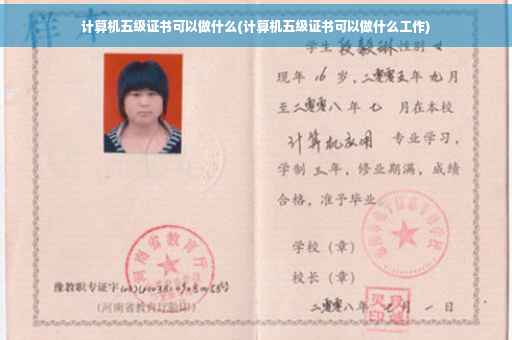 计算机五级证书可以做什么(计算机五级证书可以做什么工作)
样本
学生 段毅琳 性别 女
现年 16 岁,二零零五年 九月
至二零零八年 七 月在本校
计算机应用 专业学习,
学制 三 年,修业期满,成绩
合格,准予毕业
学校(章)
校长(章)
二零零八年 七 月 一 日
豫教职专证字
(河南省教育厅验印)
河南省教育厅